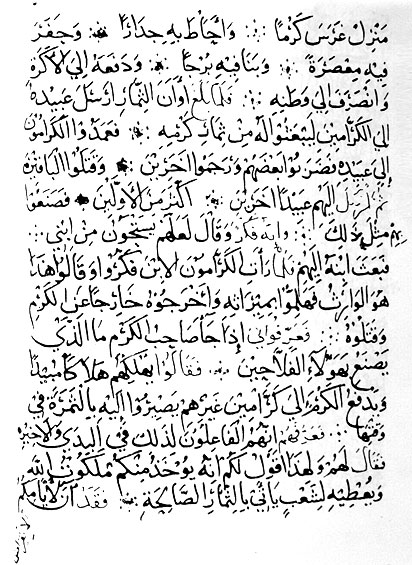 منزل غرس كرما وأحاط به جدارا وحفر
فيه معصرة وبنا فيه برجا ودفعه إلى الأكرة
وانصرف إلى وطنه فلما بلغ أوان الثمار أرسل عبيده
إلى الكرامين ليبعثوا له من ثمار كرمه فعمدوا الكرامون
إلى عبيده فضربوا بعضهم ورجموا آخرين وقتلوا الباقين
ثم أرسل إليهم عبيدا آخرين أكثر من الأولين فصنعوا
مثل ذلك وإنه فكر وقال لعلهم يستحيون من ابني
فبعث ابنه إليهم فلما رأن الكرامون الابن فكروا وقالوا هذا
هو الوارث فهلموا بميراثه وأخرجوه خارجا عن الكرم
وقتلوه فعرفوني إذا جا صاحب الكرم ما الذي
يصنع بهولاء الفلاحين فقالوا يهلكهم هلاكا مبيدا
ويدفع الكرم إلى كرامين غيرهم يصيروا إليه بالثمرة في
وقتها فعرفهم أنهم الفاعلون لذلك في البدي والأخير
فقال لهم ولهذا أقول لكم أنه يوخذ منكم ملكوت الله
ويعطيه لشعب يأتي بالثمار الصالحة فقد آن الأيامكم